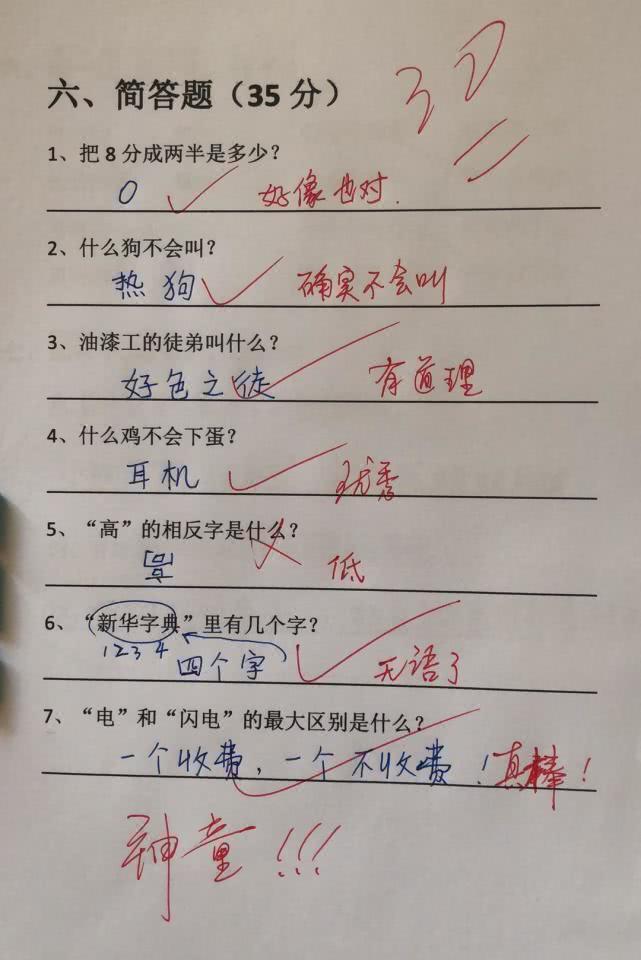 六、简答题（35 分） 30
1、把 8 分成两半是多少？
0 好像也对.
2、什么狗不会叫？
热狗 确实不会叫
3、油漆工的徒弟叫什么？
好色之徒 有道理
4、什么鸡不会下蛋？
耳机 优秀
5、“高”的相反字是什么？
低
6、“新华字典”里有几个字？
1 2 3 4 四个字 无语了
7、“电”和“闪电”的最大区别是什么？
一个收费，一个不收费！真棒！
神童！！！